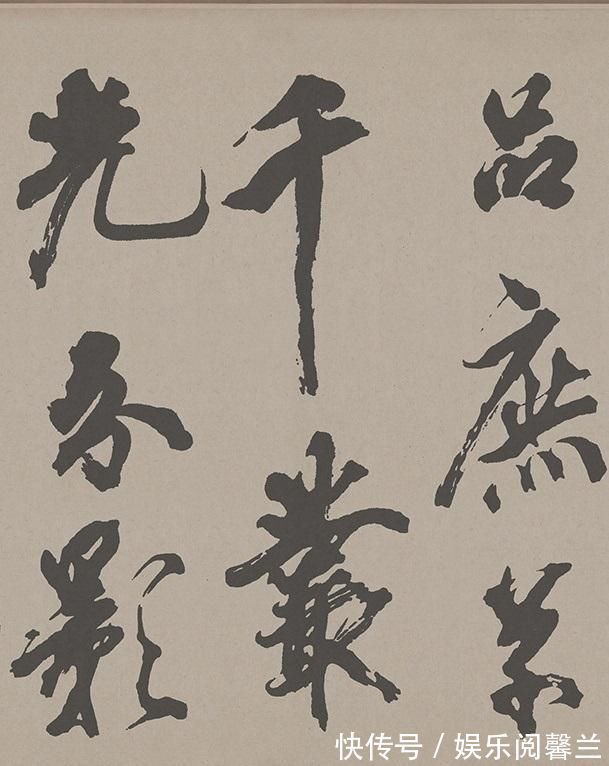 品庶
千叢
光分影
快传号 / 娱乐阅馨兰